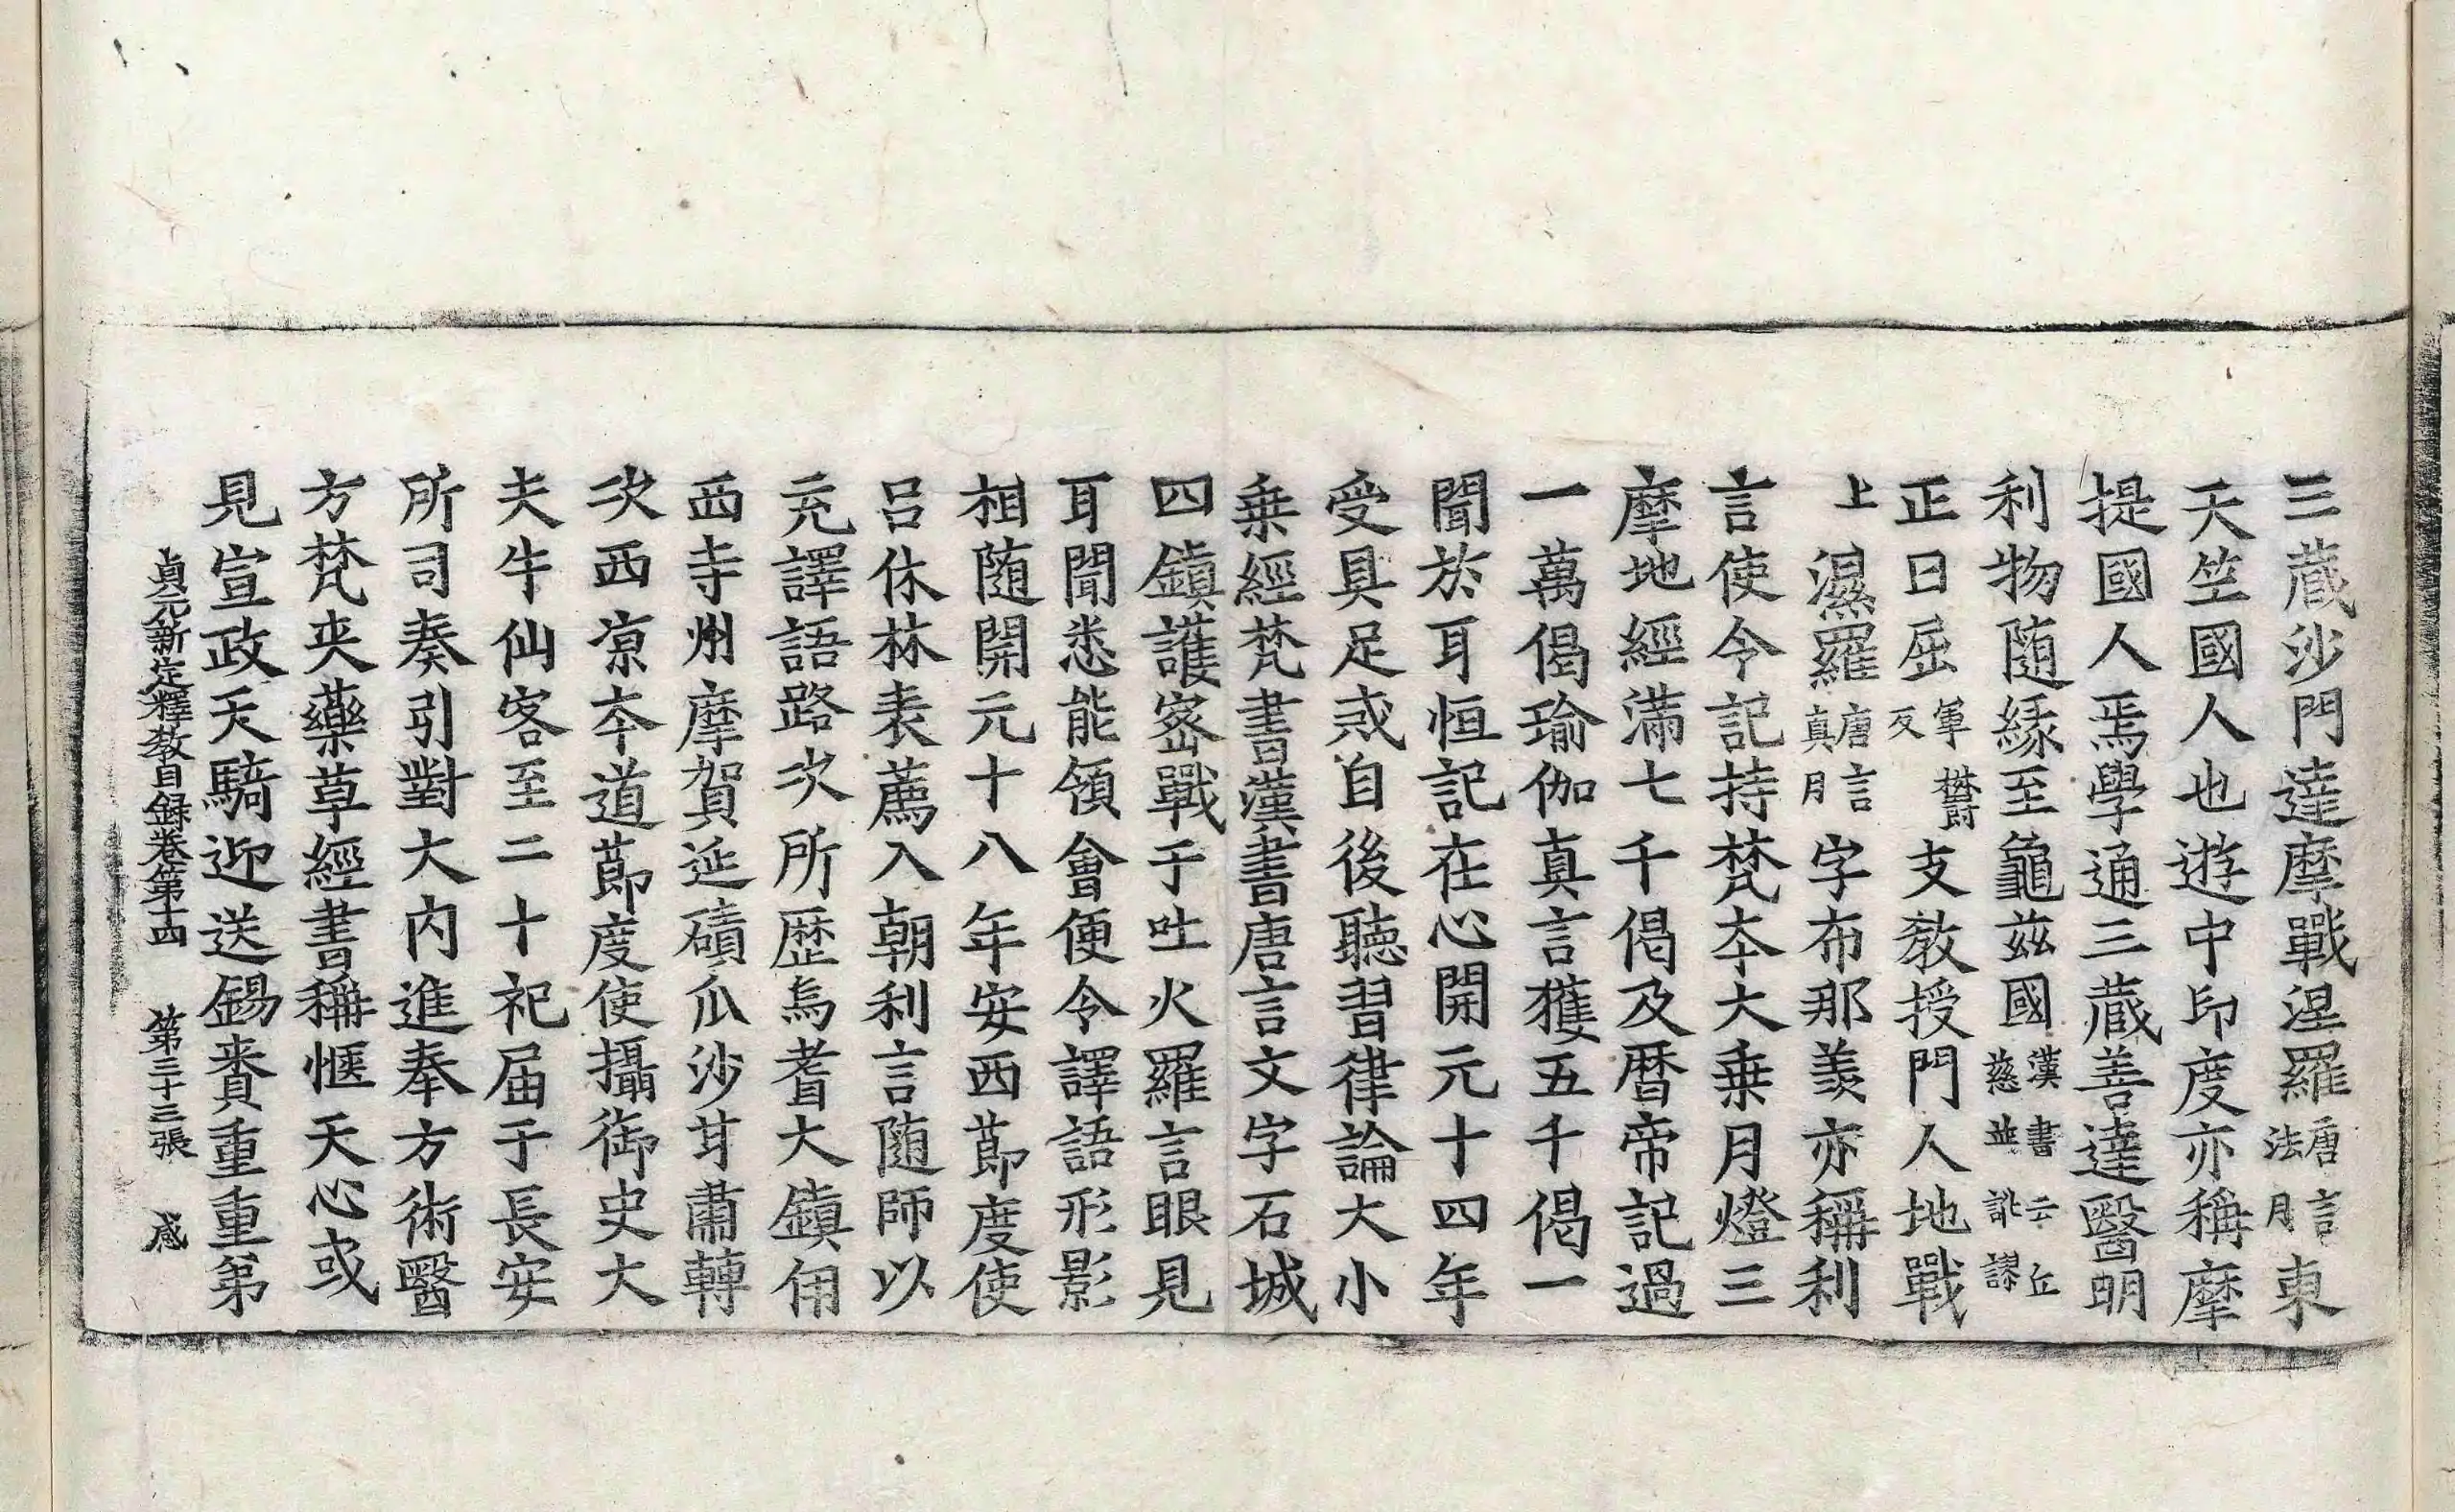 三藏沙門達摩戰涅羅唐言法月東
天竺國人也遊中印度亦稱摩
提國人焉學通三藏善達醫明
利物随緣至龜茲國漢書云丘慈並訛謬
正曰屈軍欝反支教授門人地戰
上濕羅唐言真月字布那羨亦稱利
言使令記持梵夲大乗月燈三
摩地經滿七千偈及曆帝記過
一萬偈瑜伽真言獲五千偈一
聞於耳恒記在心開元十四年
受具足戒自後聽習律論大小
乗經梵書漢書唐言文字石城
四鎮護宻戰于吐火羅言眼見
耳聞悉能領會便令譯語形影
相随開元十八年安西節度使
吕休林表薦入朝利言随師以
充譯語路次所歷烏耆大鎮伊
西寺州摩賀延磧瓜沙甘肅轉
次西凉夲道節度使攝御史大
夫牛仙客至二十祀届于長安
所司奏引對大内進奉方術醫
方梵夾藥草經書稱愜天心或
見宣政天騎迎送錫賚重重弟
貞元新定釋教目録卷第十四 第三十三張 感